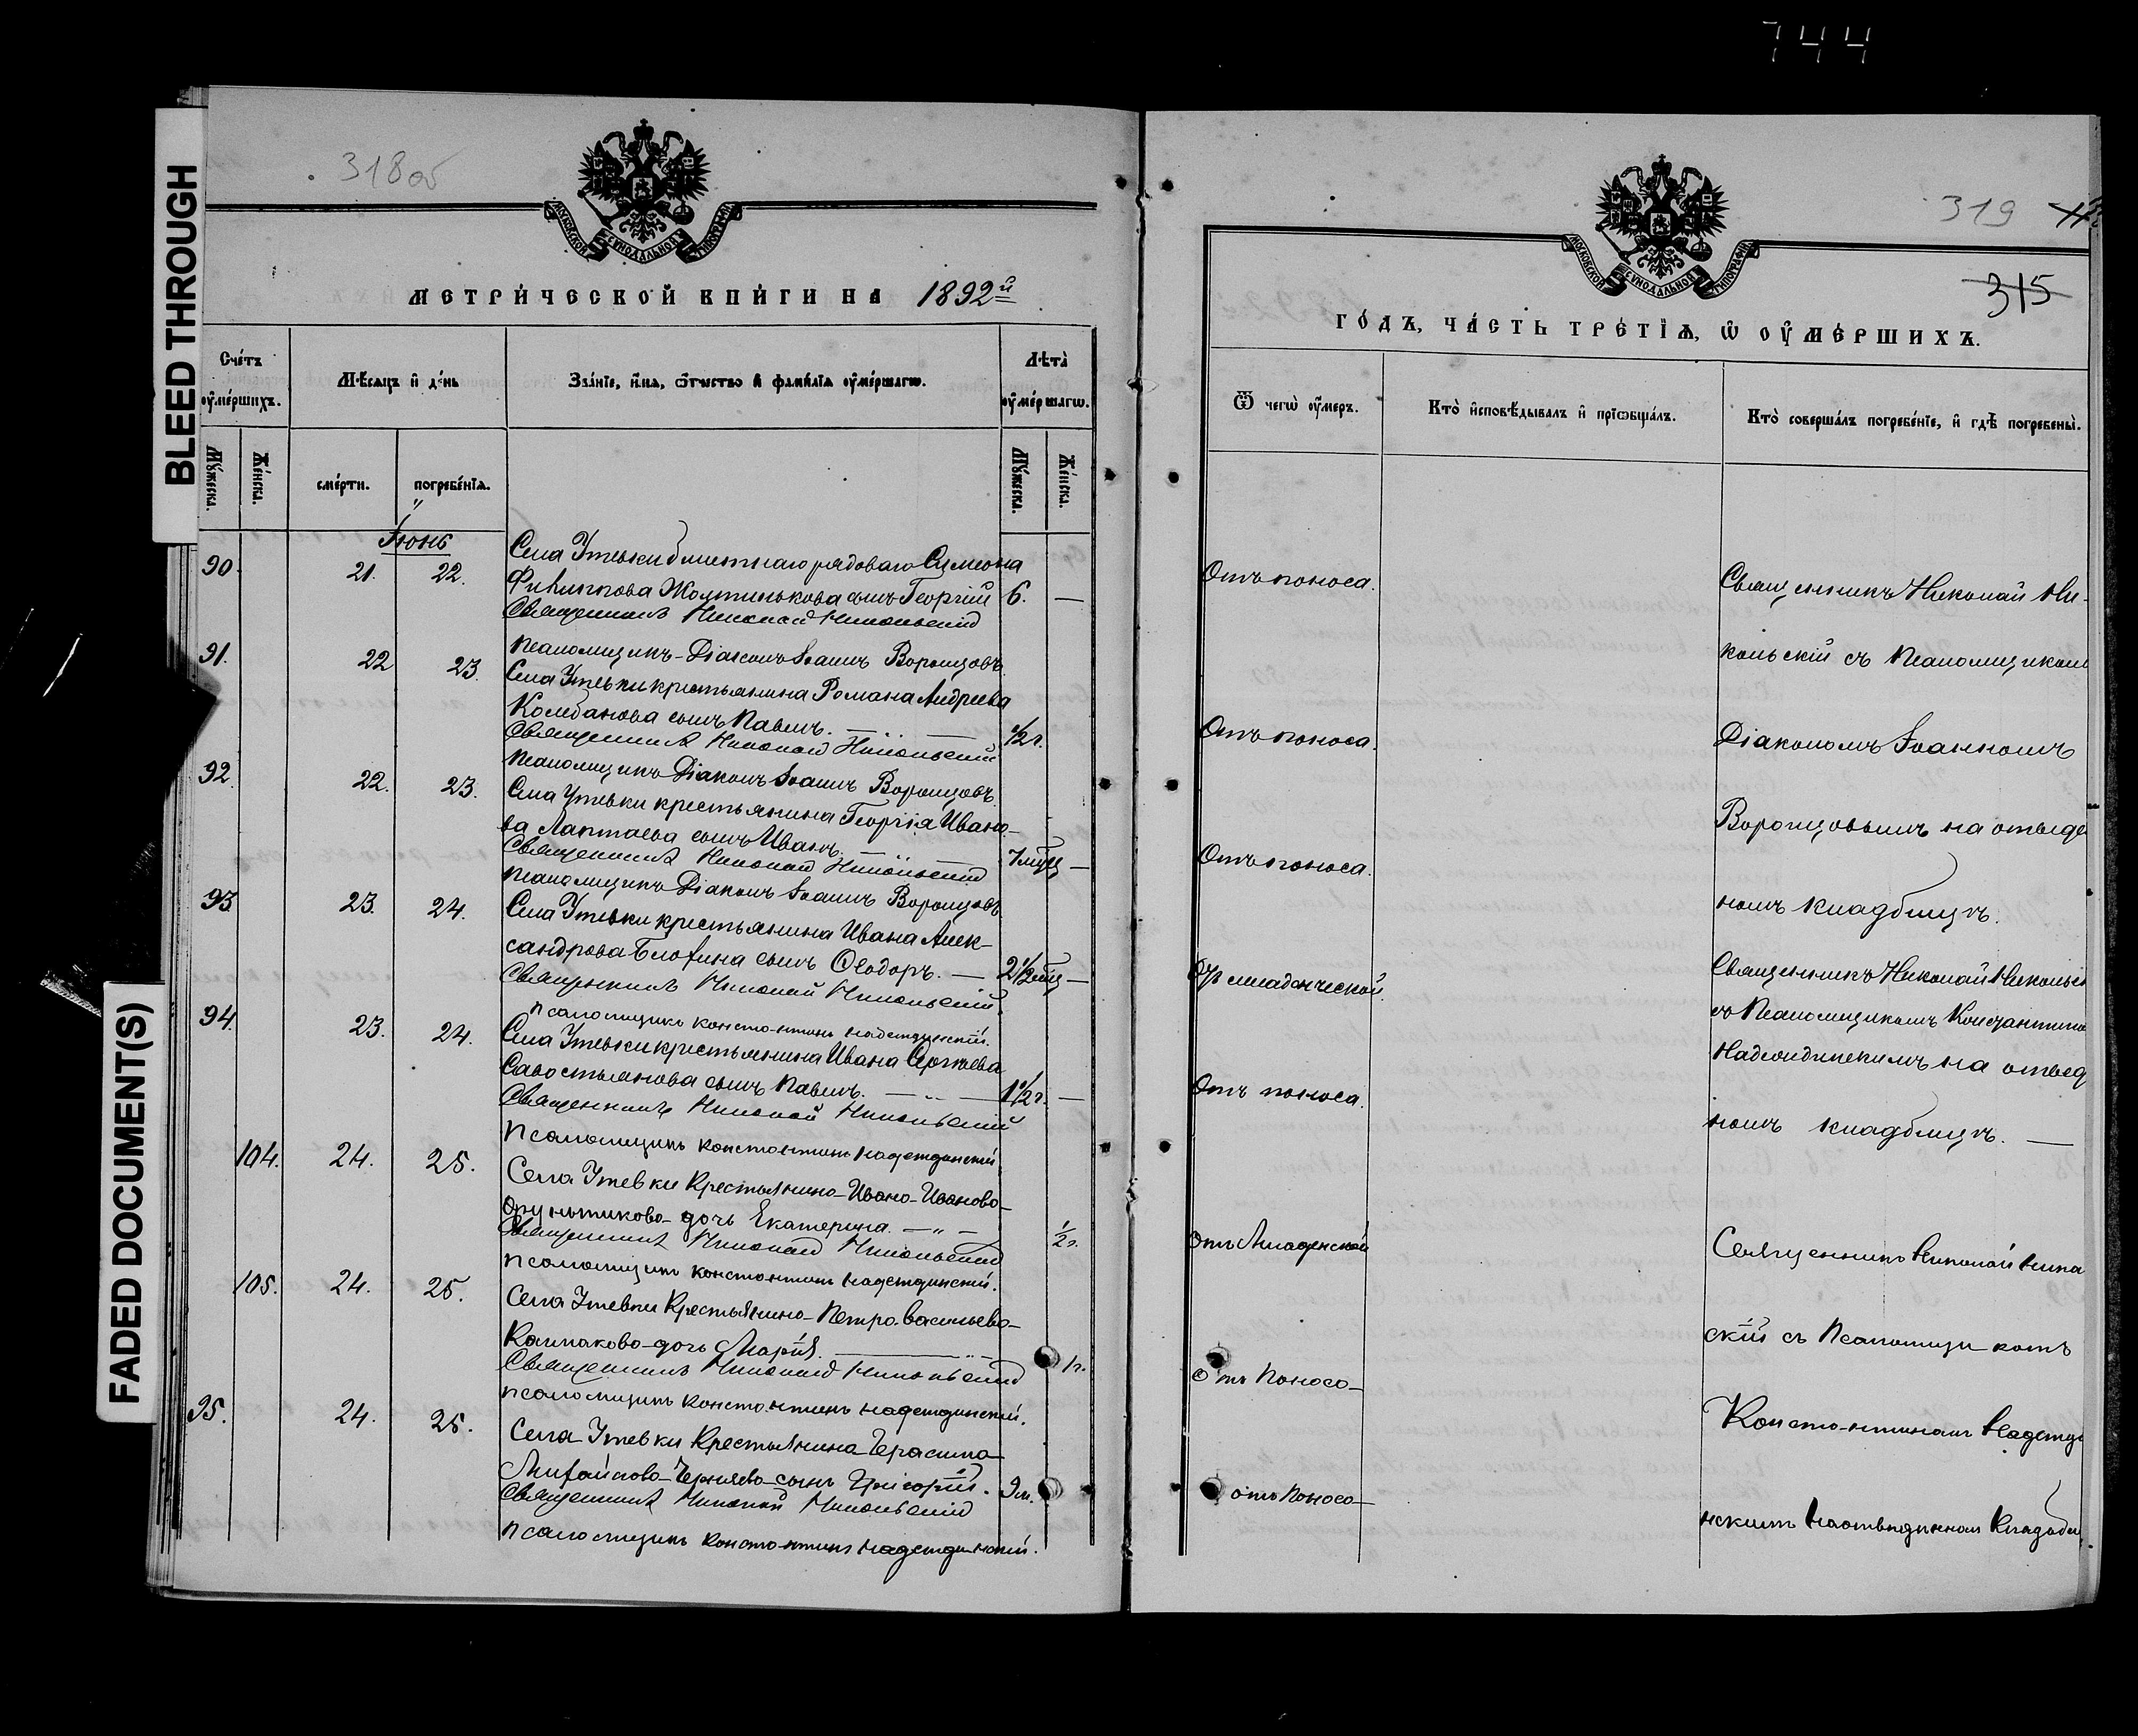 744
BLEED THROUGH
FADED DOCUMENT(S)
318об
МОСКОВСКОЙ СѴНОДАЛЬНОЙ ТИПОГРАФІИ
МЕТРИЧЕСКОЙ КНИГИ НА 1892й
Счетъ оумершихъ.
Мѣсяцъ и день
Званіе, имя, отчество и фамилія оумершагѡ.
Лѣта оумершагѡ.
Мужеска.
Женска.
смерти.
погребенія.
Мужеска.
Женска.
Іюнь
90. 21. 22. Села Утевки билетнаго рядоваго Сумеона
Филиппова Желтикова сынъ Георгій 6. —
Священникъ Николай Никольскій
Псаломщикъ-Діаконъ Іоаннъ Воронцовъ
91. 22 23. Села Утевки крестьянина Романа Андреева
Колбанова сынъ Павелъ. 1/2 г.
Священникъ Николай Никольскій
Псаломщикъ Діаконъ Іоаннъ Воронцовъ
92. 22. 23. Села Утевки крестьянина Георгія Ивано-
ва Лаптаева сынъ Иванъ. 7 мѣц —
Священникъ Николай Никольскій
Псаломщикъ Діаконъ Іоаннъ Воронцовъ
93. 23. 24. Села Утевки крестьянина Ивана Алек-
сандрова Блохина сынъ Ѳеодоръ. — 2 1/2 мѣц —
Священникъ Николай Никольскій
псаломщикъ Константинъ Надеждинскій.
94. 23. 24. Села Утевки крестьянина Ивана Сергѣева
Савостьянова сынъ Павелъ. 1 1/2 г. —
Священникъ Николай Никольскій
Псаломщикъ Константинъ Надеждинскій
104. 24. 25. Села Утевки Крестьянина Ивана Иванова
дочь Екатерина. 1/2 г.
Священникъ Николай Никольскій
Псаломщикъ Константинъ Надеждинскій.
105. 24. 25. Села Утевки Крестьянина Петра Васильева
Колпакова дочь Марія. 1 г.
Священникъ Николай Никольскій
псаломщикъ Константинъ Надеждинскій.
95. 24. 25. Села Утевки Крестьянина Герасима
Михайлова Черняева сынъ Григорій. 9 м.
Священникъ Николай Никольскій
псаломщикъ Константинъ Надеждинскій.
319
315
МОСКОВСКОЙ СѴНОДАЛЬНОЙ ТИПОГРАФІИ
ГОДЪ, ЧАСТЬ ТРЕТІЯ, Ѡ ОУМЕРШИХЪ.
Ѿ чегѡ оумеръ.
Кто исповѣдывалъ и пріобщалъ.
Кто совершалъ погребеніе, и гдѣ погребены.
Отъ поноса.
Священникъ Николай Ни-
кольскій съ Псаломщиком
Отъ поноса.
Діакономъ Іоанномъ
Воронцовымъ на отведе
Отъ поноса.
номъ кладбищѣ.
Отъ младенческой.
Священникъ Николай Никольск
съ Псаломщикомъ Константино
Надеждинскимъ на отвед
Отъ поноса.
номъ кладбищѣ. —
Отъ Младенской
Священникъ Николай Нико
скій съ Псаломщикомъ
Отъ Поноса
Константиномъ Надежди
Отъ Поноса
нскимъ на отведенномъ Кладби